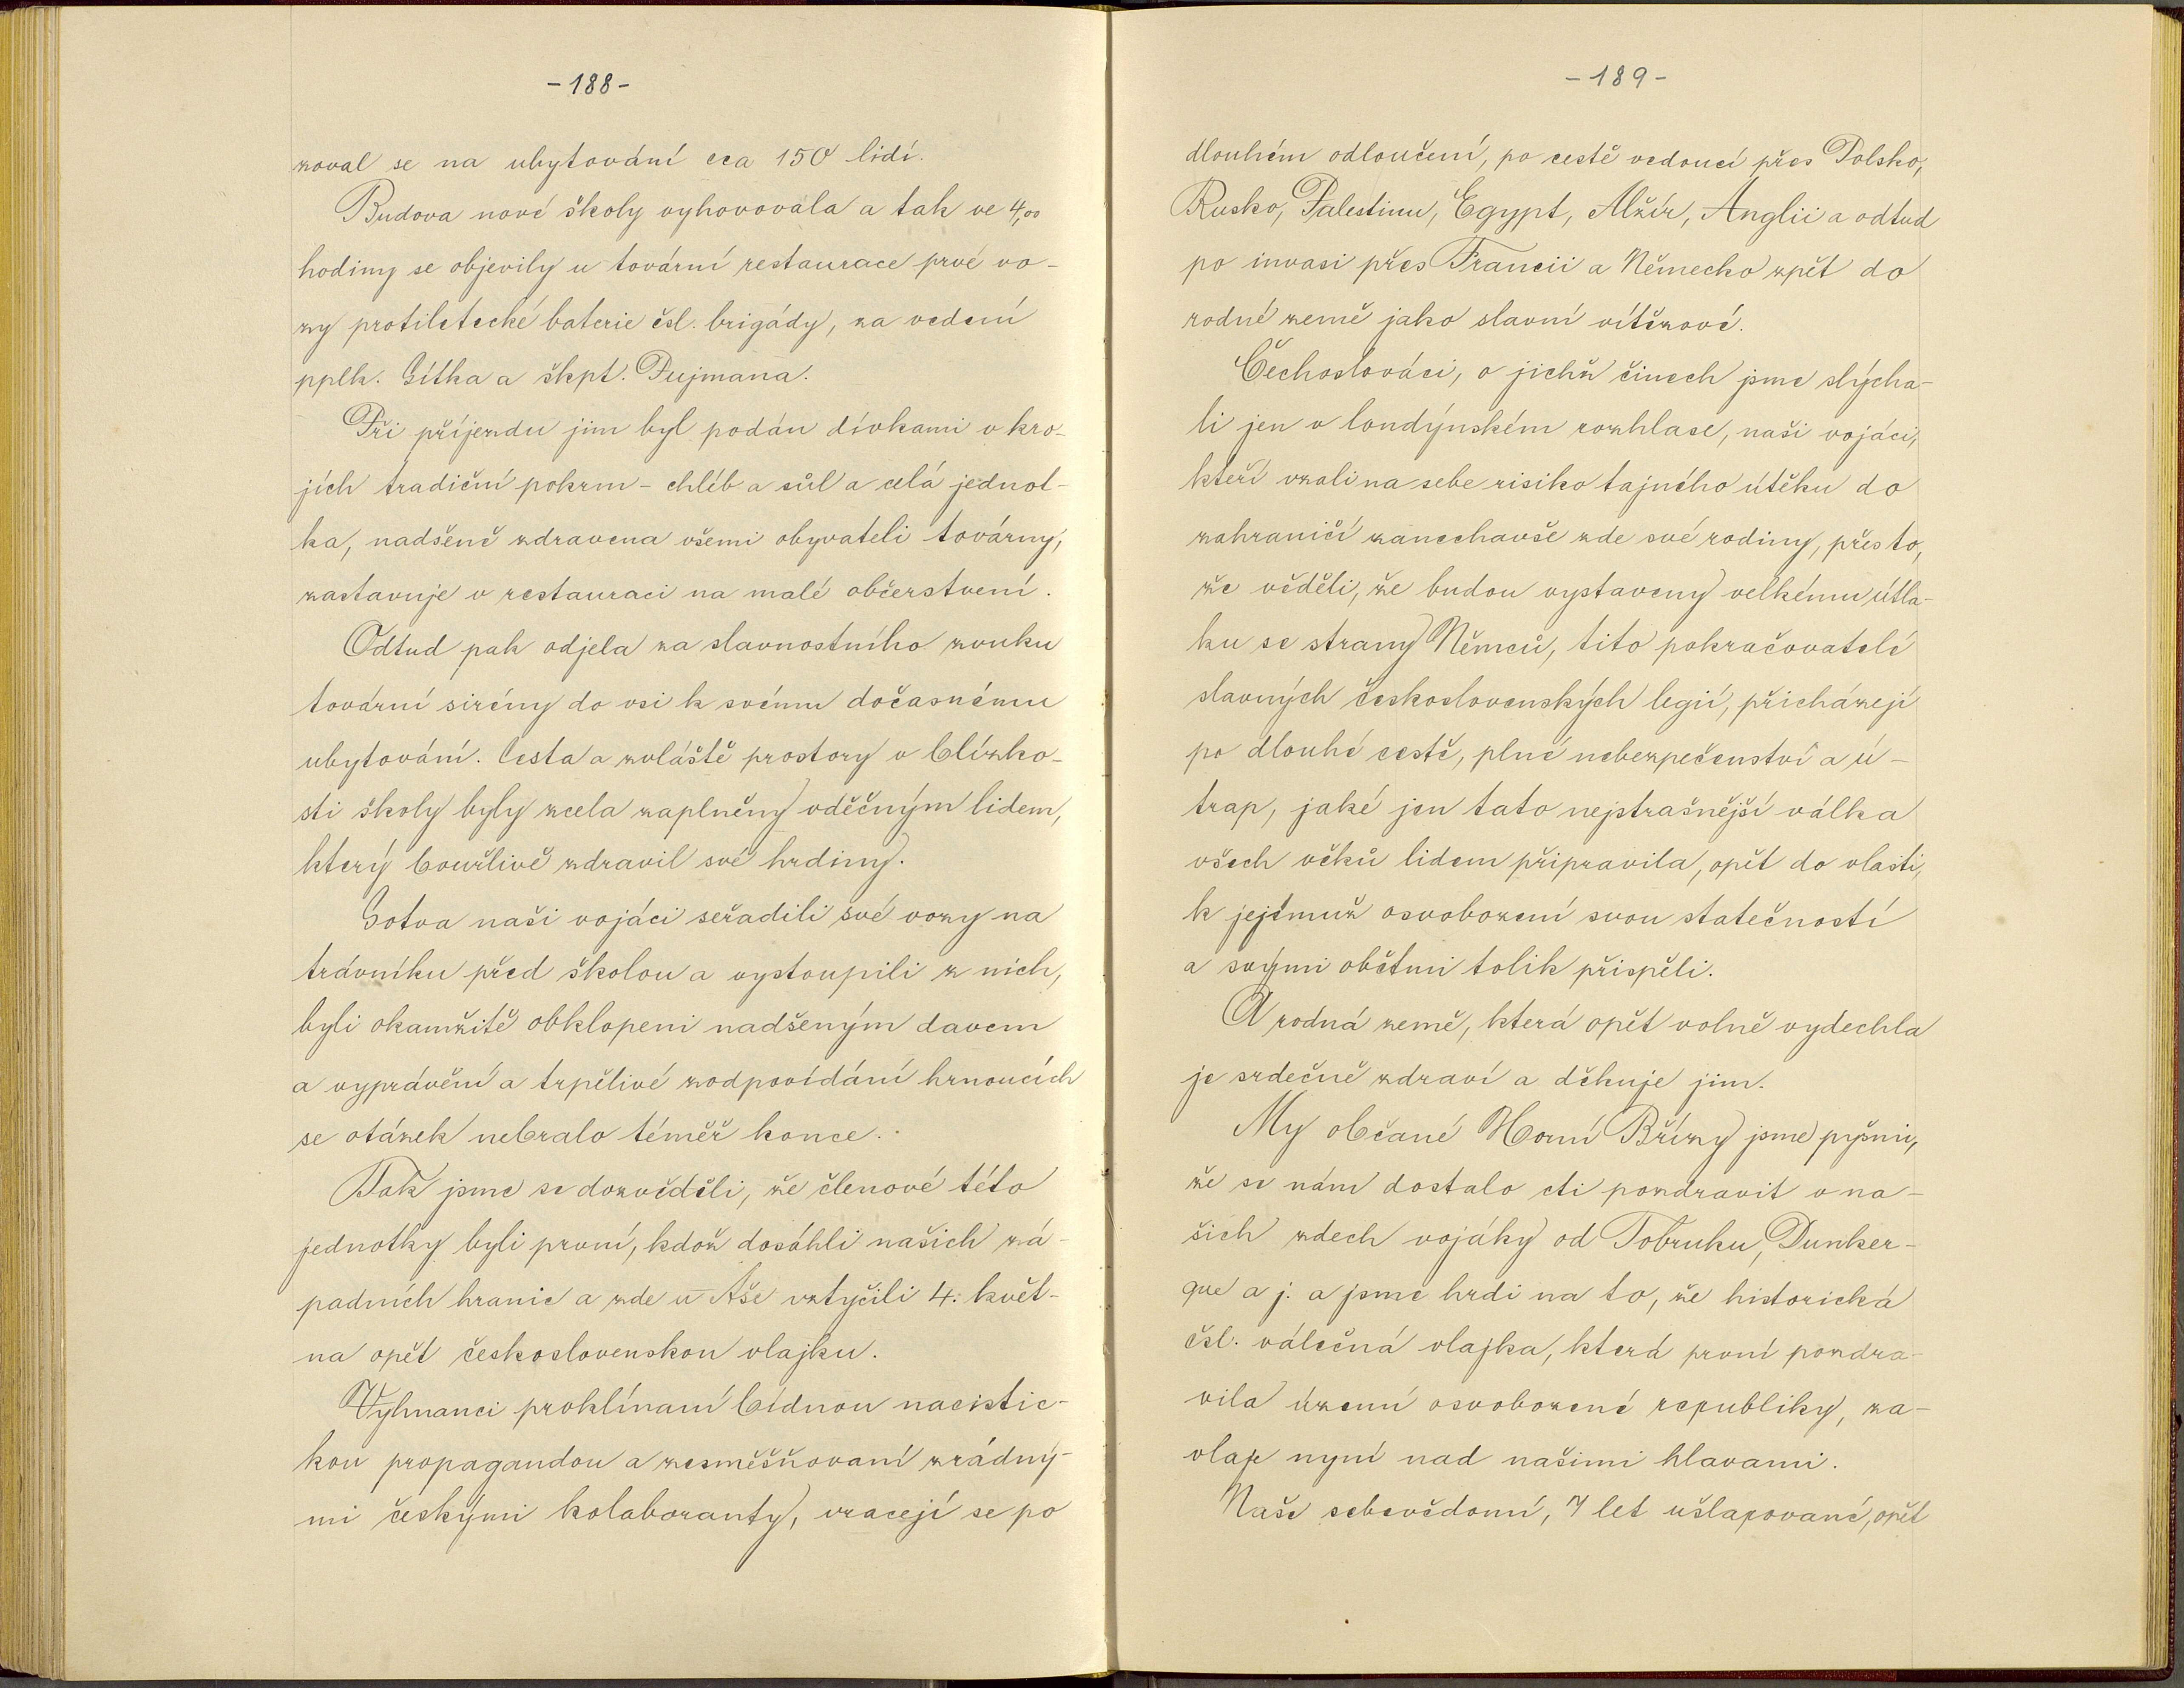 -188-
zoval se na ubytování cca 150 lidí.
Budova nové školy vyhovovala a tak ve 4,00
hodiny se objevily u tovární restaurace prvé vo-
zy protiletecké baterie čsl. brigády, za vedení
pplk. Gítka a škpt. Fujmana.
Při příjezdu jim byl podán dívkami v kro-
jích tradiční pokrm - chléb a sůl a celá jednot-
ka, nadšeně zdravena všemi obyvateli továrny,
zastavuje v restauraci na malé občerstvení.
Odtud pak odjela za slavnostního zvuku
tovární sirény do vsi k svému dočasnému
ubytování. Cesta a zvláště prostory v blízko-
sti školy byly zcela zaplněny vděčným lidem,
který bouřlivě zdravil své hrdiny.
Sotva naši vojáci seřadili své vozy na
trávníku před školou a vystoupili z nich,
byli okamžitě obklopeni nadšeným davem
a vyprávění a trpělivé zodpovídání hrnoucích
se otázek nebralo téměř konce.
Tak jsme se dozvěděli, že členové této
jednotky byli první, kdož dosáhli našich zá-
padních hranic a zde u Aše vztyčili 4. květ-
na opět československou vlajku.
Vyhnanci proklínaní bídnou nacistic-
kou propagandou a zesměšňovaní zrádný-
mi českými kolaboranty, vracejí se po
-189-
dlouhém odloučení, po cestě vedoucí přes Polsko,
Rusko, Palestinu, Egypt, Alžír, Anglii a odtud
po invasi přes Francii a Německo zpět do
rodné země jako slavní vítězové.
Čechoslováci, o jichž činech jsme slýcha-
li jen v londýnském rozhlase, naši vojáci,
kteří vzali na sebe risiko tajného útěku do
zahraničí zanechavše zde své rodiny, přes to,
že věděli, že budou vystaveny velkému útla-
ku se strany Němců, tito pokračovatelé
slavných československých legií, přicházejí
po dlouhé cestě, plné nebezpečenství a ú-
trap, jaké jen tato nejstrašnější válka
všech věků lidem připravila, opět do vlasti,
k jejímuž osvobození svou statečností
a svými obětmi tolik přispěli.
A rodná země, která opět volně vydechla
je srdečně zdraví a děkuje jim.
My občané Horní Břízy jsme pyšni,
že se nám dostalo cti pozdravit v na-
šich zdech vojáky od Tobruku, Dunker-
que a j. a jsme hrdi na to, že historická
čsl. válečná vlajka, která první pozdra-
vila území osvobozené republiky, za-
vlaje nyní nad našimi hlavami.
Naše sebevědomí, 7 let ušlapované, opět